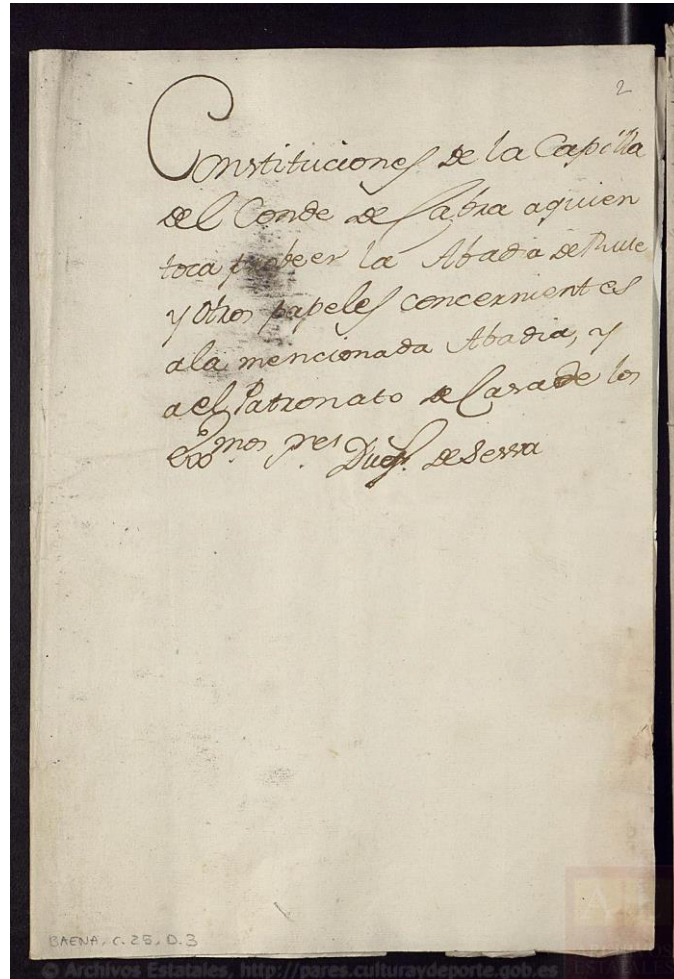 2
Constituciones de la Capilla
del Conde de Cabra aquien
toca probeer la Abadia de Rute
y Otros papeles concernientes
ala mencionada Abadia, y
ael Patronato de Casa de los
exᵐᵒˢ sʳᵉˢ Duqˢ. de Sessa
BAENA, C. 25, D. 3
© Archivos Estatales, http://pares.culturaydeporte.gob.es